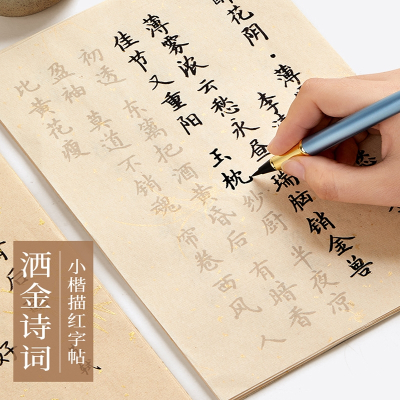 花阴·薄
李
薄雾浓云愁永昼瑞脑销金兽
佳节又重阳玉枕纱厨半夜凉
初透东篱把酒黄昏后有暗香
盈袖莫道不销魂帘卷西风人
比黄花瘦
洒金诗词
小楷描红字帖
后
好